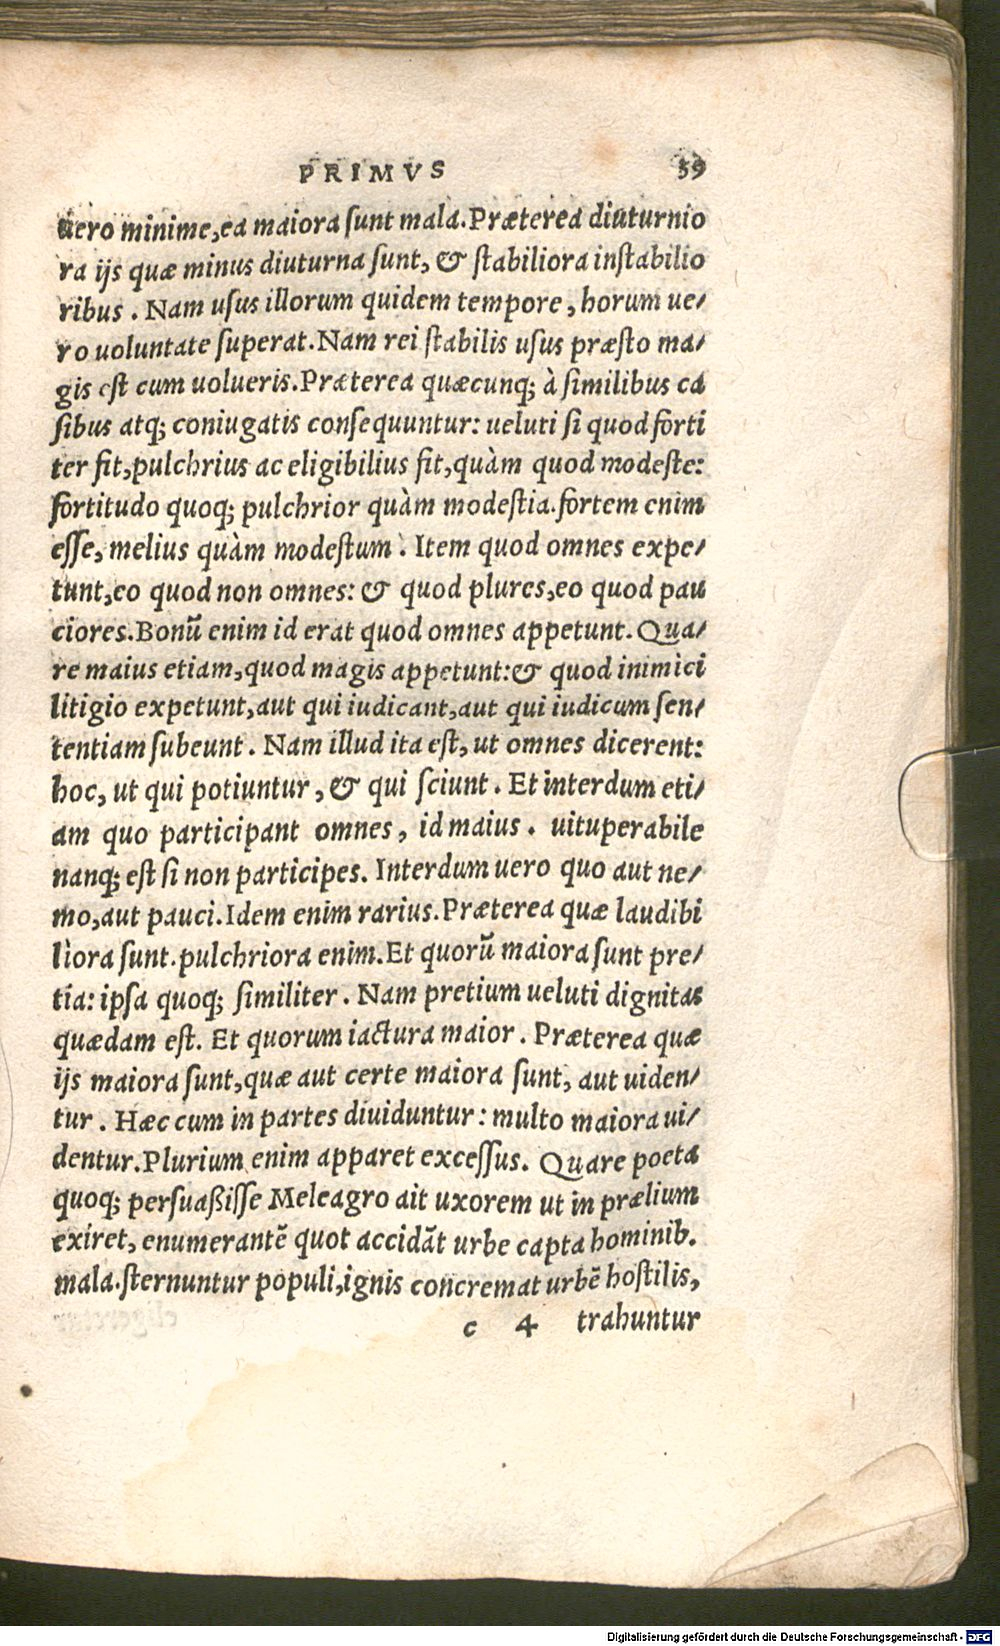 PRIMVS 39
uero minime, ea maiora sunt mala. Præterea diuturnio
ra ijs quæ minus diuturna sunt, & stabiliora instabilio
ribus. Nam usus illorum quidem tempore, horum ue/
ro uoluntate superat. Nam rei stabilis usus præsto ma/
gis est cum uolueris. Præterea quæcunq; à similibus ca
sibus atq; coniugatis consequuntur: ueluti si quod forti
ter fit, pulchrius ac eligibilius sit, quàm quod modeste:
fortitudo quoq; pulchrior quàm modestia. fortem enim
esse, melius quàm modestum. Item quod omnes expe/
tunt, eo quod non omnes: & quod plures, eo quod pau
ciores. Bonũ enim id erat quod omnes appetunt. Qua/
re maius etiam, quod magis appetunt: & quod inimici
litigio expetunt, aut qui iudicant, aut qui iudicum sen/
tentiam subeunt. Nam illud ita est, ut omnes dicerent:
hoc, ut qui potiuntur, & qui sciunt. Et interdum eti/
am quo participant omnes, id maius. uituperabile
nanq; est si non participes. Interdum uero quo aut ne/
mo, aut pauci. Idem enim rarius. Præterea quæ laudibi
liora sunt. pulchriora enim. Et quorũ maiora sunt pre/
tia: ipsa quoq; similiter. Nam pretium ueluti dignitas
quædam est. Et quorum iactura maior. Præterea quæ
ijs maiora sunt, quæ aut certe maiora sunt, aut uiden/
tur. Hæc cum in partes diuiduntur: multo maiora ui/
dentur. Plurium enim apparet excessus. Quare poeta
quoq; persuaßisse Meleagro ait uxorem ut in prælium
exiret, enumerantẽ quot accidãt urbe capta hominib.
mala. sternuntur populi, ignis concremat urbẽ hostilis,
c 4 trahuntur
Digitalisierung gefördert durch die Deutsche Forschungsgemeinschaft - DFG